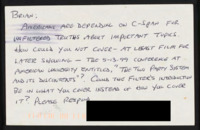 BRIAN:
AMERICANS ARE DEPENDING ON C-SPAN FOR
UNFILTERED TRUTHS ABOUT IMPORTANT TOPICS.
HOW COULD YOU NOT COVER - AT LEAST FILM FOR
LATER SHOWING - THE 5-13-99 CONFERENCE AT
AMERICAN UNIVERSITY ENTITLED, "THE TWO PARTY SYSTEM
AND ITS DISCONTENTS"? COULD THE FILTER'S INTRODUCTION
BE IN WHAT YOU COVER INSTEAD OF HOW YOU COVER
IT? PLEASE RESPOND.